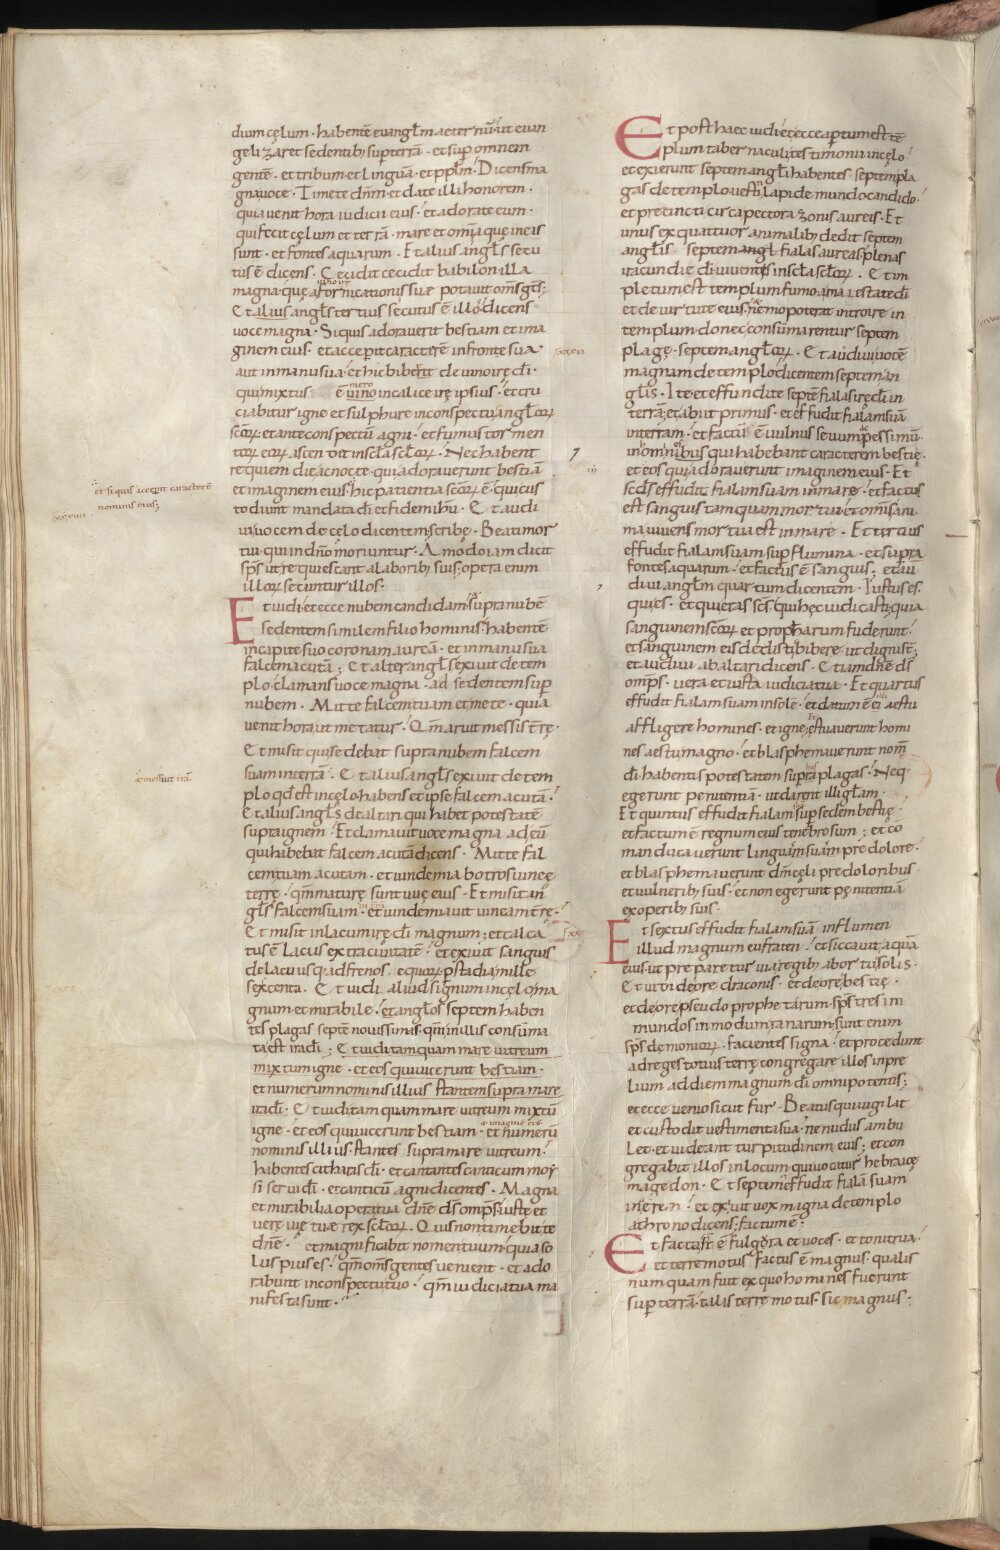 dium cęlum · habentē euangl̄m aeternū · ut euan
gelizaret sedentib; sup terrā · et sup omnem
gentē · et tribum et linguā · et pp̄lm · Dicens ma
gna uoce · Timete dn̄m · et date illi honorem ·
quia uenit hora iudicii eius · et adorate eum ·
qui fecit cęlum et terrā · mare et omīa quę in eis
sunt · et fontes aquarum · Et alius angl̄s secu
tus ē dicens · Cecidit cecidit babilon illa
magna · quę a fornicationis suæ potauit om̄s gt̄s;
Et alius angl̄s tertius secutus ē illos dicens
uoce magna · Si quis adorauerit bestiam et ima
ginem eius · et acceperit caracterē in fronte sua
aut in manu sua · et hic bibet de uino irę d̄i ·
qui mixtus ē uino in calice irę ipsius · et cru
ciabitur igne et sulphure in conspectu angl̄orum
sc̄orum et ante conspectū agni · et fumus tormen
torum eorum ascendit in scl̄a scl̄orum · Nec habent
requiem die ac nocte · qui adorauerunt bestiā
et imaginem eius · hic patientia sc̄orum ē · qui cus
todiunt mandata d̄i et fidem ih̄u · Et audi
ui uocem de cęlo dicentem · scribe · Beati mor
tui · qui in dn̄o moriuntur · Amodo iam dicit
sp̄s ut requiescant a laborib; suis; opera enim
illorum secuntur illos ·
Et uidi · et ecce nubem candidam · et supra nubē
sedentem similem filio hominis · habentē
in capite suo coronam aureā · et in manu sua
falcem acutā ; Et alter angl̄s exiuit de tem
plo clamans uoce magna · ad sedentem sup
nubem · Mitte falcem tuam et mete · quia
uenit hora ut metatur · Qm̄ aruit messis t̄rę ·
Et misit qui sedebat supra nubem falcem
suam in terrā · Et alius angl̄s exiuit de tem
plo qd̄ est in cęlo habens et ipse falcem acutā ·
Et alius angl̄s de altari qui habet potestatē
supra ignem · Et clamauit uoce magna ad eū
qui habebat falcem acutā dicens · Mitte fal
cem tuam acutam · et uindemia botros uineę
terrę · qm̄ maturę sunt uuę eius · Et misit an
gl̄s falcem suam · et uindemiauit uineam t̄rę ·
Et misit in lacum irę d̄i magnum ; et calca
tus ē lacus extra ciuitatē · et exiuit sanguis
de lacu usq; ad frenos equorum p stadia mille
sexcenta · Et uidi aliud signum in cęlo ma
gnum et mirabile · et angl̄os septem haben
tes plagas septē nouissimas · qm̄ in illis consūma
ta est ira d̄i ; Et uidi tamquam mare uitreum
mixtum igne · et eos qui uicerunt bestiam ·
et numerum nominis illius stantem supra mare
Et uidi tamquam mare uitreum mixtū
igne · et eos qui uicerunt bestiam · et numerū
nominis illius · stantes supra mare uitreum ·
habentes citharas d̄i · et cantantes canticum moy
si serui d̄i · et canticū agni · dicentes · Magna
et mirabilia opera tua dn̄e d̄s omp̄s · iustę et
uerę uię tuæ rex scl̄orum · Quis non timebit te
dn̄e · et magnificabit nomen tuum · quia so
lus pius es · qm̄ om̄s gentes uenient · et ado
rabunt in conspectu tuo · qm̄ iudicia tua ma
nifesta sunt ·
et si quis acceperit caracterē
nominis eius;
& messuit t̄rā
Et post haec uidi · et ecce apertum est tē
plum tabernaculi testimonii in cęlo ·
et exierunt septem angl̄i habentes septem pla
gas de templo uestiti lapide mundo candido ·
et precincti circa pectora zonis aureis · Et
unus ex quattuor animalib; dedit septem
angl̄is · septem fialas aureas plenas
iracundię d̄i uiuentis in scl̄a scl̄orum · Et im
pletum est templum fumo a maiestate d̄i
et de uirtute eius; nemo poterat introire in
templum donec consūmarentur septem
plagę · septem angl̄orum · Et audiui uocē
magnam de templo dicentem septem an
gl̄is · Ite et effundite septē fialas irę d̄i in
terrā; et abiit primus · et effudit fialam suā
in terram · et factū ē uulnus seuum ac pessimū ·
in hominibus qui habebant caracterem bestię ·
et eos qui adorauerunt imaginem eius · Et
sc̄ds effudit fialam suam in mare · et factus
est sanguis tamquam mortui · et om̄s ani
ma uiuens mortua est in mare · Et tertius
effudit fialam suam sup flumina · et supra
fontes aquarum · et factus ē sanguis ; et au
diui angl̄m quartum dicentem · Iustus es
qui es · et qui eras sc̄s · qui hęc iudicasti; quia
sanguinem sc̄orum et prophetarum fuderunt ·
et sanguinem eis dedisti bibere · ut digni st̄ ;
et audiui ab altari dicens · Etiam dn̄e d̄s
omp̄s · uera et iusta iudicia tua · Et quartus
effudit fialam suam in solē · et datum ē ei aestu
affligere homines · et igne; et stuauerunt homi
nes aestu magno · et blasphemauerunt nom̄
d̄i habentis potestatem supra plagas · Neq;
egerunt penitentiā · ut darent illi gl̄am ·
Et quintus effudit fialam sup sedem bestię ·
et factum ē regnum eius tenebrosum ; et cō
manducauerunt linguam suam pre dolore ·
et blasphemauerunt dm̄ cęli pre doloribus
et uulnerib; suis · et non egerunt pęnitentiā
ex operib; suis ·
Et sextus effudit fialam suā in flumen
illud magnum eufraten · et siccauit aquā
eius · ut prepareтur uia regib; ab ortu solis ·
Et uidi de ore draconis · et de ore bestię ·
et de ore pseudo prophetarum · sp̄s tres in
mundos in modum ranarum · sunt enim
sp̄s dęmoniorum · facientes signa · et procedunt
ad reges totius terrę congregare illos in pre
lium ad diem magnum d̄i omnipotentis;
et ecce uenio sicut fur · Beatus qui uigilat
et custodit uestimenta sua · ne nudus ambu
let · et uideant turpitudinem eius ; et con
gregabit illos in locum · qui uocatur hebraice
magedon · Et septim' effudit fialā suam
in aerem · et exiuit uox magna de templo
a throno dicens · factum ē ·
Et facta st̄ fulgora et uoces · et tonitrua ·
et terremotus factus ē magnus · qualis
numquam fuit ex quo homines fuerunt
sup terrā · talis terre motus · sic magnus ·